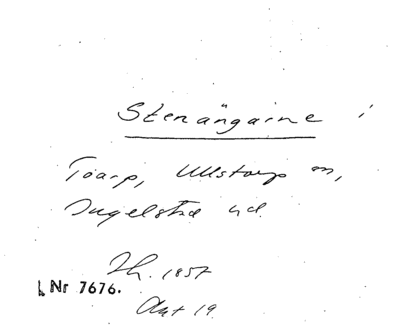 Stenängarne i
Toarp, Ullstorp sn,
Ingelstad hd.
Jh. 1857
Nr 7676.
Akt 19.